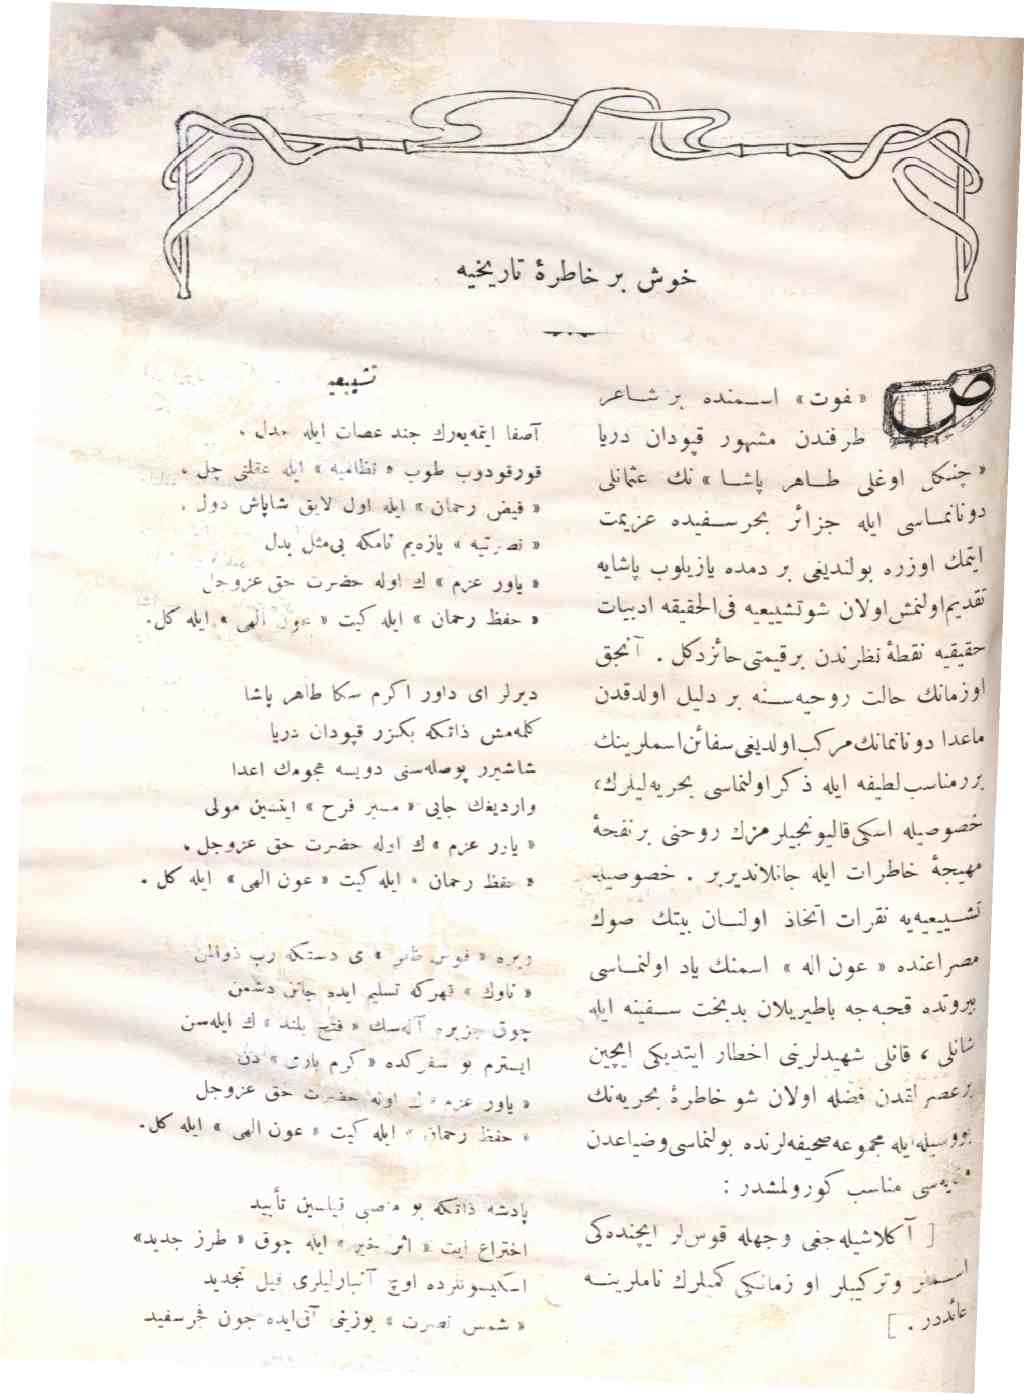 خوش بر خاطرۀ تاریخیه
ص
«فوت» اسـمنده بر شـاعر
طرفندن مشهور قپودان دریا
«چنكل اوغلی طـاهر پاشـا» نك عثمانلی
دونانمـاسی ایله جزائر بحرسـفیده عزیمت
ایتمك اوزره بولندیغی بر دمده یازیلوب پاشایه
تقدیم اولنمش اولان شو تشییعیه فی‌الحقیقه ادبیات
حقیقیه نقطۀ نظرندن بر قیمتی حائز دكل . آنجق
اوزمانك حالت روحیه‌سـنه بر دلیل اولدقدن
ماعدا دونانمانك مركب اولدیغی سفائن اسملرینك
برر مناسب لطیفه ایله ذكر اولنماسی بحریه‌لیلرك،
خصوصیله اسكی قالیونجیلرمزك روحنی بر نفحۀ
مهیجۀ خاطرات ایله جانلاندیریر . خصوصیله
تشـییعیه‌یه نقرات اتخاذ اولنـان بیتك صوك
مصراعنده «عون اله» اسمنك یاد اولنمـاسی
بیروتده قحبه‌جه باطیریلان بدبخت سـفینه ایله
شانلی ، قانلی شهیدلرینی اخطار ایتدیكی ایچین
برعصرلقدن فضله اولان شو خاطرۀ بحریه‌نك
بووسیله ایله مجموعه صحیفه‌لرنده بولنماسی وضیاعدن
مناسب كورولمشدر :
[ آكلاشیله‌جغی وجهله قوس‌لر ایچنده‌كی
اسـملر وتركیبلر او زمانكی كمیلرك ناملرینـه
عائددر . ]
تشییعیه
آصفا ایتمه‌یه‌رك جند عصات ایله جدل .
قورقودوب طوب «نظامیه» ایله عقلنی چل .
«فیض رحمان» ایله اول لایق شاپاش دول .
«نصرتیه» یازه‌یم نامكه بی‌مثل بدل
«یاور عزم» ك اوله حضرت حق عزوجل
«حفظ رحمان» ایله كیت «عون الهی» ایله كل .
دیرلر ای داور اكرم سكا طاهر پاشا
كلمه‌مش ذاتكه بكزر قپودان دریا
شاشیرر پوصله‌سنی دویسه هجومك اعدا
واردیغك جایی «مسیر فرح» ایتسین مولی
«یاور عزم» ك اوله حضرت حق عزوجل .
«حفظ رحمان» ایله كیت «عون الهی» ایله كل .
ویره «قوس ظفر» ی دستكه رب ذوالمن
«ناوك» قهركه تسلیم ایده جانن دشمن
چوق جزیره آله‌سك «فتح بلند» ك ایله‌سن
ایسترم بو سفركده «كرم باری» دن
«یاور عزم» ك اوله حضرت حق عزوجل
«حفظ رحمان» ایله كیت «عون الهی» ایله كل .
پادشه ذاتكه بو منصبی قیلسین تأیید
اختراع ایت «اثر خیر» ایله چوق «طرز جدید»
اوچ آنبارلیلری قیل تجدید
«شمس نصرت» یوزینی آق ایده چون فجرسفید